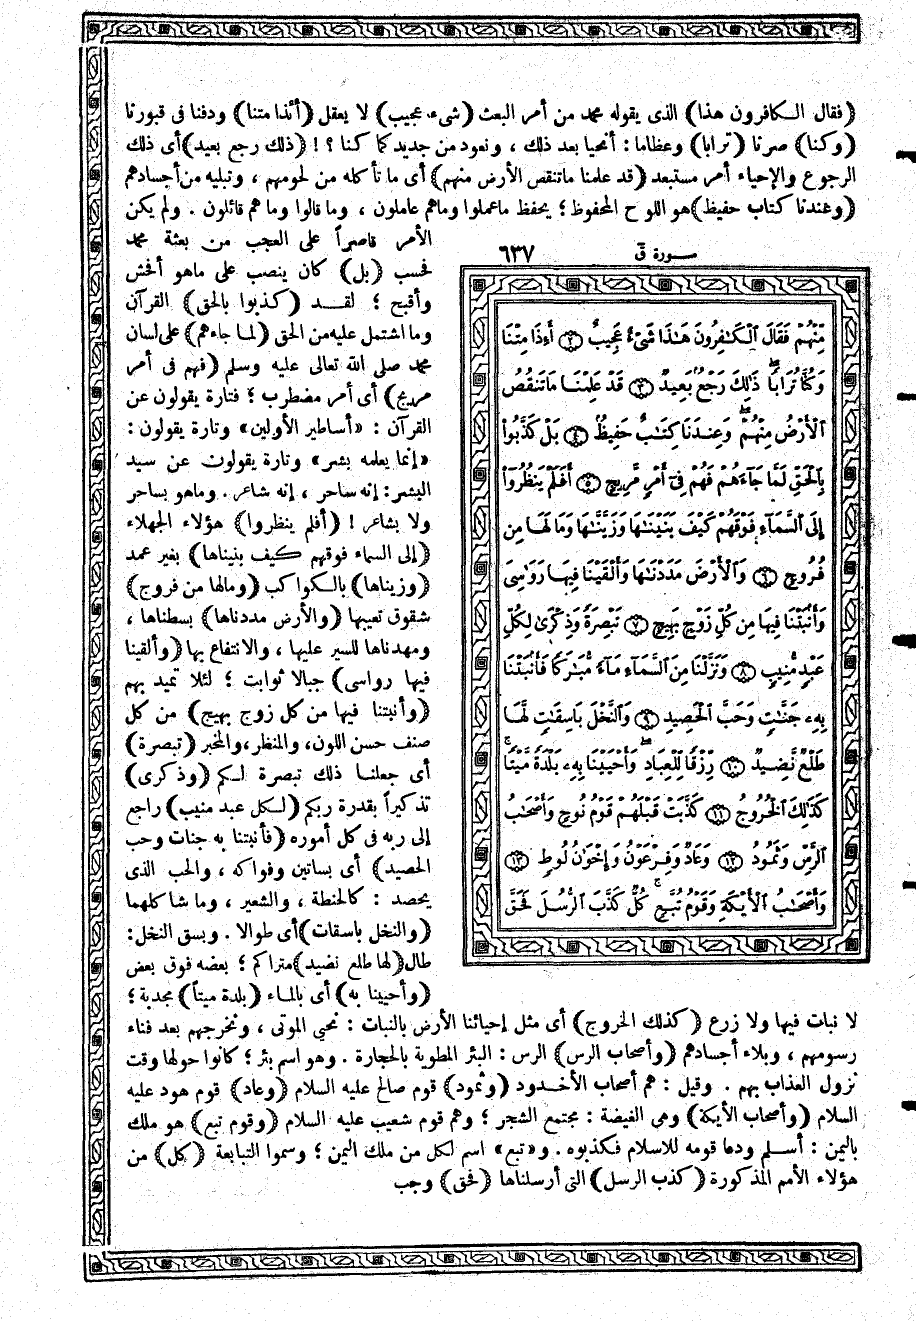 (فقال الكافرون هذا) الذى يقوله محمد من أمر البعث (شىء عجيب) لا يعقل (أئذا متنا) ودفنا فى قبورنا
(وكنا) صرنا (ترابا) وعظاما: أنحيا بعد ذلك ، ونعود من جديد كما كنا ؟! (ذلك رجع بعيد) أى ذلك
الرجوع والإحياء أمر مستبعد (قد علمنا ما تنقص الأرض منهم) أى ما تأكله من لحومهم ، وتبليه من أجسادهم
(وعندنا كتاب حفيظ) هو اللوح المحفوظ ؛ يحفظ ما عملوا وما هم عاملون ، وما قالوا وما هم قائلون . ولم يكن
الأمر قاصراً على العجب من بعثة محمد
فحسب (بل) كان ينصب على ما هو أفحش
وأقبح ؛ لقد (كذبوا بالحق) القرآن
وما اشتمل عليه من الحق (لما جاءهم) على لسان
محمد صلى الله تعالى عليه وسلم (فهم فى أمر
مريج) أى أمر مضطرب ؛ فتارة يقولون عن
القرآن : «أساطير الأولين» وتارة يقولون :
«إنما يعلمه بشر» وتارة يقولون عن سيد
البشر: إنه ساحر ، إنه شاعر . وما هو بساحر
ولا بشاعر ! (أفلم ينظروا) هؤلاء الجهلاء
(إلى السماء فوقهم كيف بنيناها) بغير عمد
(وزيناها) بالكواكب (ومالها من فروج)
شقوق تعيبها (والأرض مددناها) بسطناها ،
ومهدناها للسير عليها ، والانتفاع بها (وألقينا
فيها رواسى) جبالا ثوابت ؛ لئلا تميد بهم
(وأنبتنا فيها من كل زوج بهيج) من كل
صنف حسن اللون، والمنظر، والمخبر (تبصرة)
أى جعلنا ذلك تبصرة لكم (وذكرى)
تذكيراً بقدرة ربكم (لكل عبد منيب) راجع
إلى ربه فى كل أموره (فأنبتنا به جنات وحب
الحصيد) أى بساتين وفواكه ، والحب الذى
يحصد : كالحنطة ، والشعير ، وما شاكلهما
(والنخل باسقات) أى طوالا . وبسق النخل:
طال (لها طلع نضيد) متراكم ؛ بعضه فوق بعض
(وأحيينا به) أى بالماء (بلدة ميتاً) مجدبة ؛
سورة قٓ ٦٣٧
مِّنْهُمْ فَقَالَ ٱلْكَٰفِرُونَ هَٰذَا شَىْءٌ عَجِيبٌ ٢ أَءِذَا مِتْنَا
وَكُنَّا تُرَابًا ۖ ذَٰلِكَ رَجْعٌۢ بَعِيدٌ ٣ قَدْ عَلِمْنَا مَا تَنقُصُ
ٱلْأَرْضُ مِنْهُمْ ۖ وَعِندَنَا كِتَٰبٌ حَفِيظٌۢ ٤ بَلْ كَذَّبُوا۟
بِٱلْحَقِّ لَمَّا جَآءَهُمْ فَهُمْ فِىٓ أَمْرٍ مَّرِيجٍ ٥ أَفَلَمْ يَنظُرُوٓا۟
إِلَى ٱلسَّمَآءِ فَوْقَهُمْ كَيْفَ بَنَيْنَٰهَا وَزَيَّنَّٰهَا وَمَا لَهَا مِن
فُرُوجٍ ٦ وَٱلْأَرْضَ مَدَدْنَٰهَا وَأَلْقَيْنَا فِيهَا رَوَٰسِىَ
وَأَنۢبَتْنَا فِيهَا مِن كُلِّ زَوْجٍۭ بَهِيجٍ ٧ تَبْصِرَةً وَذِكْرَىٰ لِكُلِّ
عَبْدٍ مُّنِيبٍ ٨ وَنَزَّلْنَا مِنَ ٱلسَّمَآءِ مَآءً مُّبَٰرَكًا فَأَنۢبَتْنَا
بِهِۦ جَنَّٰتٍ وَحَبَّ ٱلْحَصِيدِ ٩ وَٱلنَّخْلَ بَاسِقَٰتٍ لَّهَا
طَلْعٌ نَّضِيدٌ ١٠ رِّزْقًا لِّلْعِبَادِ ۖ وَأَحْيَيْنَا بِهِۦ بَلْدَةً مَّيْتًا ۚ
كَذَٰلِكَ ٱلْخُرُوجُ ١١ كَذَّبَتْ قَبْلَهُمْ قَوْمُ نُوحٍ وَأَصْحَٰبُ
ٱلرَّسِّ وَثَمُودُ ١٢ وَعَادٌ وَفِرْعَوْنُ وَإِخْوَٰنُ لُوطٍ ١٣
وَأَصْحَٰبُ ٱلْأَيْكَةِ وَقَوْمُ تُبَّعٍ ۚ كُلٌّ كَذَّبَ ٱلرُّسُلَ فَحَقَّ
لا نبات فيها ولا زرع (كذلك الخروج) أى مثل إحيائنا الأرض بالنبات : نحيى الموتى ، ونخرجهم بعد فناء
رسومهم ، وبلاء أجسادهم (وأصحاب الرس) الرس : البئر المطوية بالحجارة . وهو اسم بئر ؛ كانوا حولها وقت
نزول العذاب بهم . وقيل : هم أصحاب الأخدود (وثمود) قوم صالح عليه السلام (وعاد) قوم هود عليه
السلام (وأصحاب الأيكة) وهى الغيضة : مجتمع الشجر ؛ وهم قوم شعيب عليه السلام (وقوم تبع) هو ملك
باليمن : أسلم ودعا قومه للاسلام فكذبوه . و«تبع» اسم لكل من ملك اليمن ؛ وسموا التبابعة (كل) من
هؤلاء الأمم المذكورة (كذب الرسل) التى أرسلناها (فحق) وجب